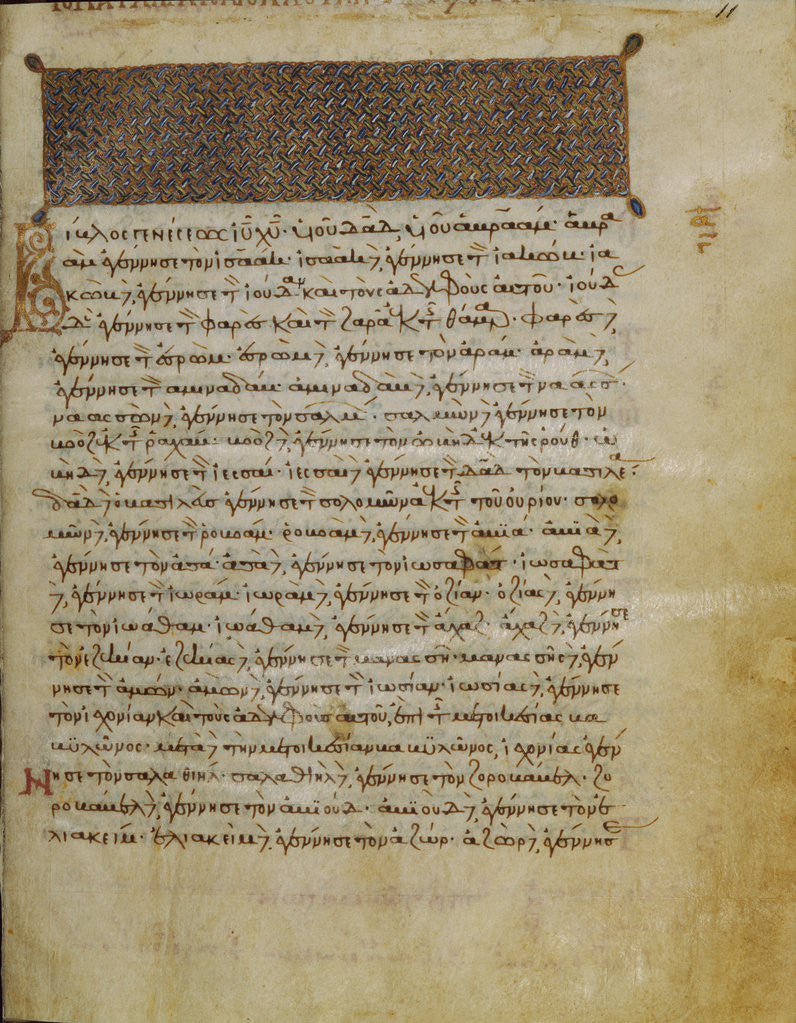 11
Βίβλος γενέσεως ἰῦ χῦ· υἱοῦ δᾱδ, υἱοῦ ἀβραάμ· ἀβρα
ὰμ ἐγέννησε τὸν ἰσαάκ· ἰσαὰκ δὲ, ἐγέννησε τὸν ἰακώβ· ἰα
κὼβ δὲ, ἐγέννησε τὸν ἰούδαν καὶ τοὺς ἀδελφοὺς αὐτοῦ· ἰού
δας δὲ ἐγέννησε τὸν φαρὲς καὶ τὸν ζαρὰ ἐκ τῆς θάμαρ· φαρὲς δὲ,
ἐγέννησε τὸν ἐσρώμ· ἐσρὼμ δὲ, ἐγέννησε τὸν ἀράμ· ἀρὰμ δὲ,
ἐγέννησε τὸν ἀμιναδάμ· ἀμιναδὰμ δὲ, ἐγέννησε τὸν ναασσ·
ναασσὼν δὲ, ἐγέννησε τὸν σαλμ· σαλμὼν δὲ ἐγέννησε τὸν
βοὸζ ἐκ τῆς ραχάβ· βοὸζ δὲ, ἐγέννησε τὸν ὠβὴδ ἐκ τῆς ρούθ· ὠ
βὴδ δὲ, ἐγέννησε τὸν ἰεσσαί· ἰεσσαὶ δὲ ἐγέννησε τὸν δᾱδ τὸν βασιλέα·
δᾱδ δὲ ὁ βασιλεὺς ἐγέννησε τὸν σολομῶνα ἐκ τῆς τοῦ οὐρίου· σολο
μὼν δὲ, ἐγέννησε τὸν ῥοβοάμ· ῥοβοὰμ δὲ, ἐγέννησε τὸν ἀβϊά· ἀβϊὰ δὲ,
ἐγέννησε τὸν ἀσά· ἀσὰ δὲ, ἐγέννησε τὸν ἰωσαφάτ· ἰωσαφὰτ
δὲ, ἐγέννησε τὸν ἰωράμ· ἰωρὰμ δὲ, ἐγέννησε τὸν ὀζίαν· ὀζίας δὲ, ἐγέννη
σε τὸν ἰωάθαμ· ἰωάθαμ δὲ, ἐγέννησε τὸν ἄχαζ· ἄχαζ δὲ, ἐγέννησε
τὸν ἐζεκίαν· ἐζεκίας δὲ, ἐγέννησε τὸν μανασσῆ· μανασσῆς δὲ, ἐγέν
νησε τὸν ἀμών· ἀμὼν δὲ, ἐγέννησε τὸν ἰωσίαν· ἰωσίας δὲ, ἐγέννησε
τὸν ἰχονίαν καὶ τοὺς ἀδελφοὺς αὐτοῦ, ἐπὶ τῆς μετοικεσίας βα
βϋλῶνος· μετὰ δὲ τὴν μετοικεσίαν βαβϋλῶνος, ἰχονίας ἐγέν
νησε τὸν σαλαθιήλ· σαλαθιὴλ δὲ, ἐγέννησε τὸν ζοροβάβελ· ζο
ροβάβελ δὲ, ἐγέννησε τὸν ἀβϊούδ· ἀβϊοὺδ δὲ, ἐγέννησε τὸν ἐ
λιακείμ· ἐλιακεὶμ δὲ, ἐγέννησε τὸν ἀζώρ· ἀζὼρ δὲ, ἐγέννησε